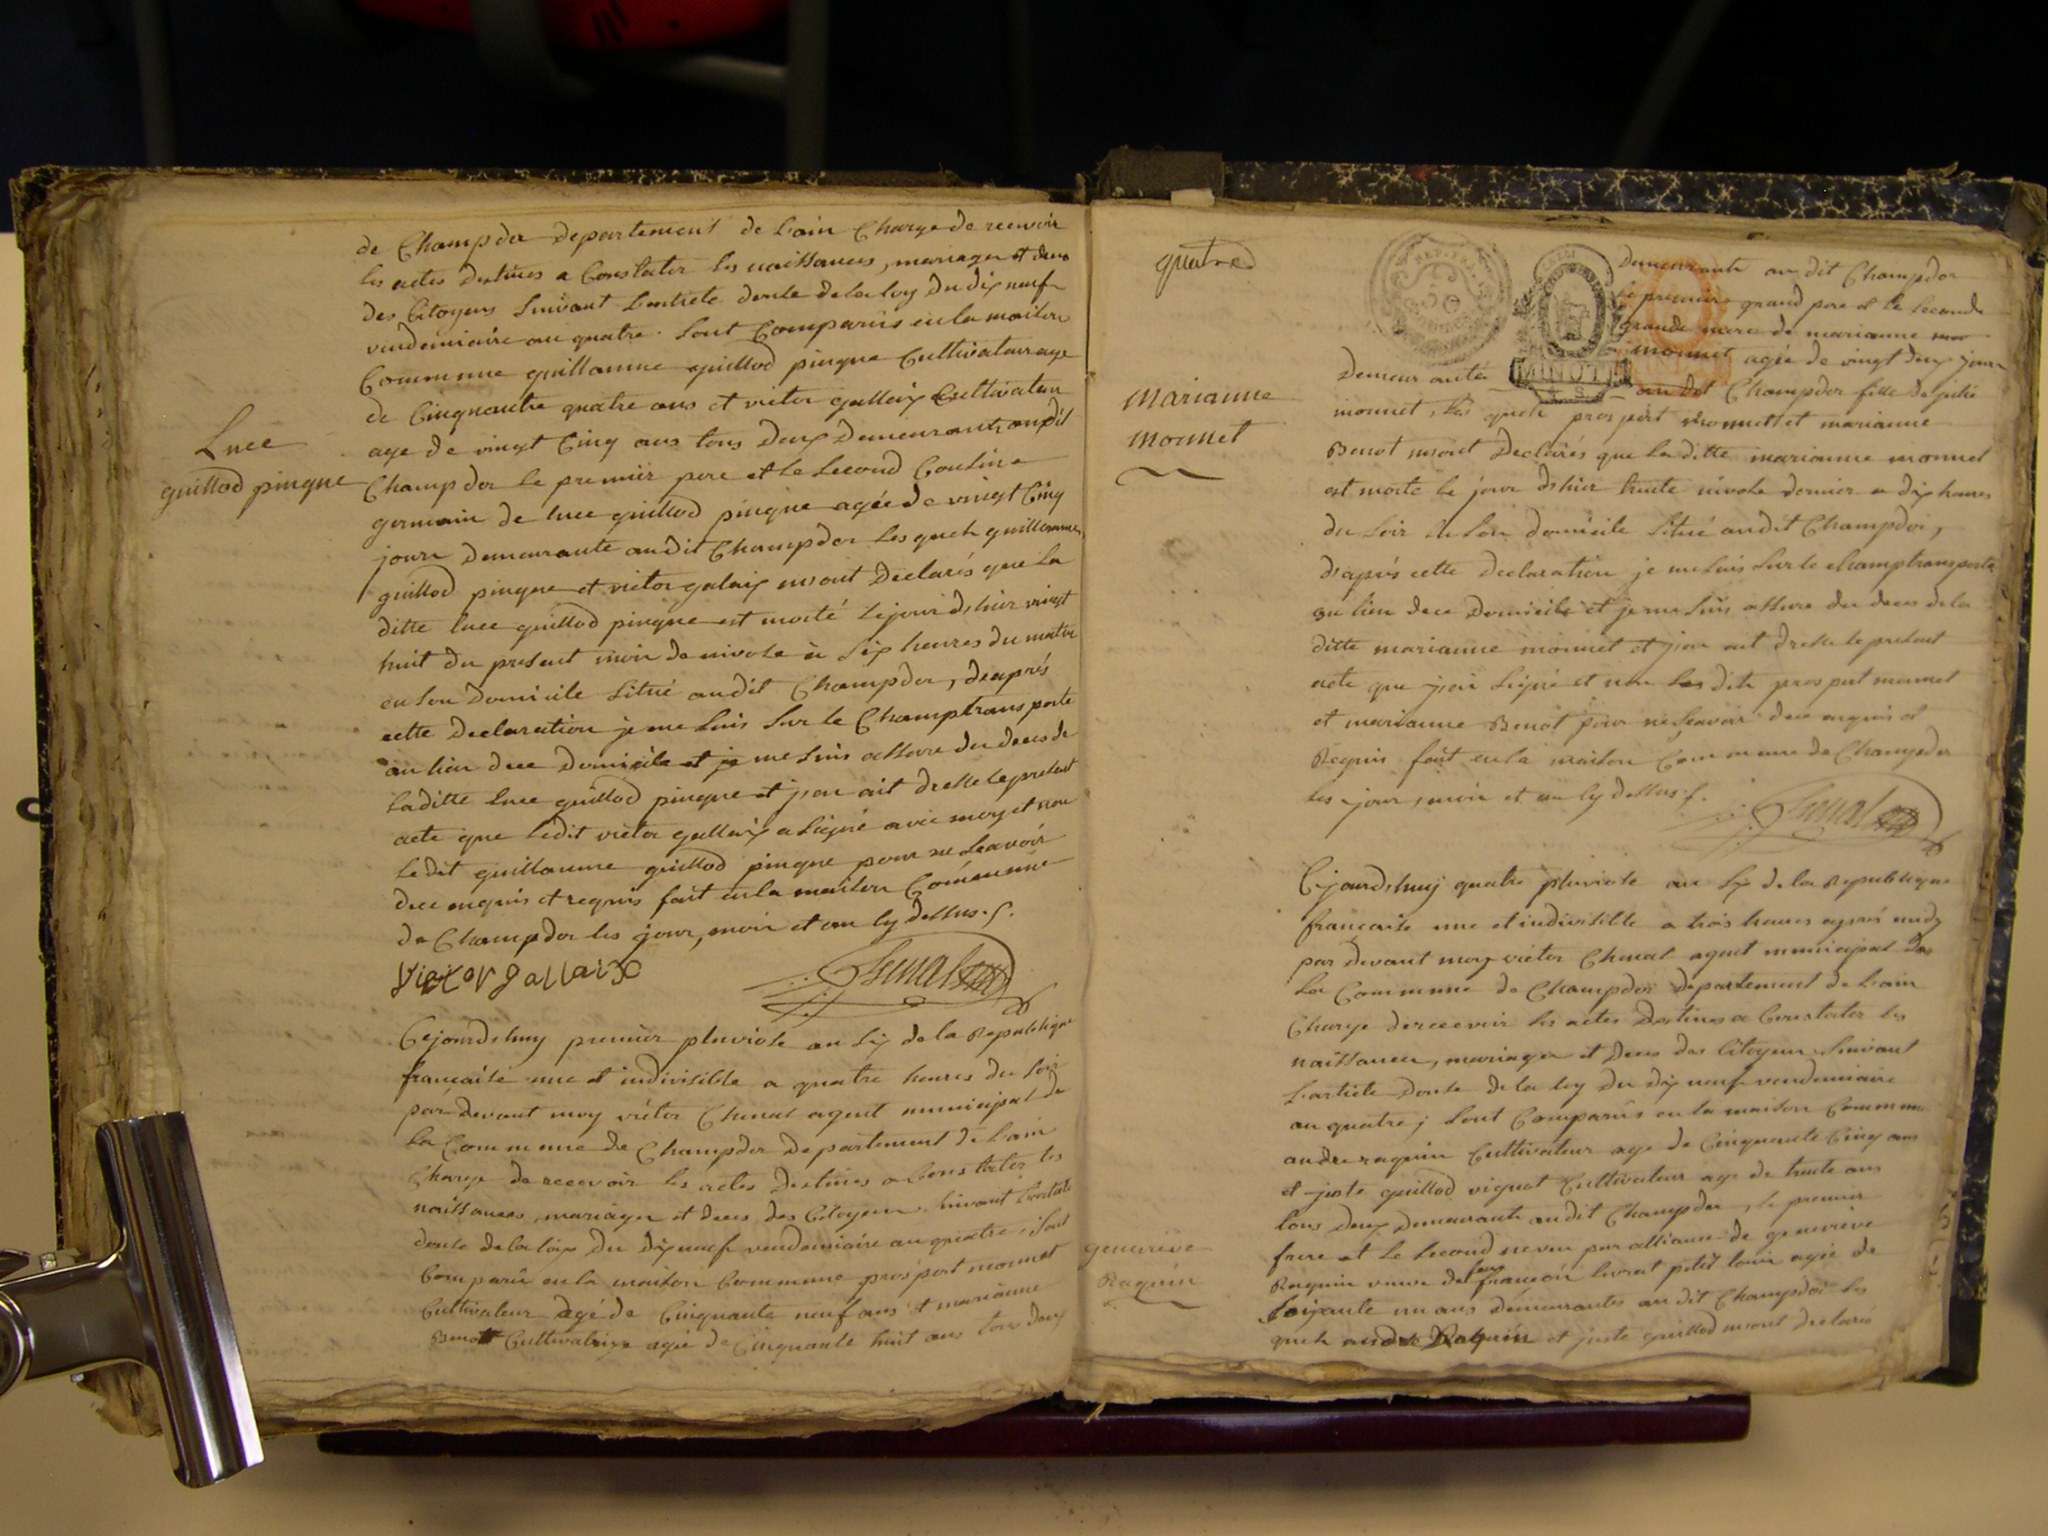 de Champdor departement de Lain Charge de recevoir
les actes destinés a Constater les naissances, mariages et deces
des Citoyens suivant Lartiele douse de la loy du dix neuf
vendemiaire an quatre. sont Comparüs en la maison
Commune guillaume guillod pingne Cultivateur age
de Cinquante quatre ans et victor gallaix Cultivateur
age de vingt Cinq ans tous deux demeurants audit
Luce
guillod pingne
Champdor le premier pere et le second Cousin
germain de luce guillod pingne agée de vingt Cinq
jours demeurante audit Champdor lesquels guillaume
guillod pingne et victor galaix mont declarés que la
ditte luce guillod pingne est morté le jour dhier vingt
huit du present mois de nivose à six heures du matin
en son domicile situé audit Champdor, daprés
cette declaration je me suis sur le Champ transporté
au lieu dece domicile et je me suis assure du deces de
laditte luce guillod pingne et jen ait dressé le present
acte que ledit victor gallaix a signé avec moy et non
ledit guillaume guillod pingne pour ne scavoir
dece enquis et requis fait en la maison Commune
de Champdor les jour, mois et an cy dessus.
Victor gallaix Chenal
Cejourdhuy premier pluviose an six de la Republique
francaise une et indivisible a quatre heures du soir
par devant moy victor Chenal agent municipal de
la Commune de Champdor departement de Lain
Charge de recevoir les actes destinés a Constater les
naissances, mariages et deces des Citoyens suivant Lartiele
douse de la loix du dix neuf vendemiaire an quatre, sont
Comparü en la maison Commune prospert monnet
Cultivateur agé de Cinquante neuf ans et marianne
Benoit Cultivatrixe agée de Cinquante huit ans tous deux
quatre
demeurants audit Champdor
le premier grand pere et le seconde
grande mere de marianne
monnet agée de vingt deux jours
MINUTE
demeurante audit Champdor fille de
marianne
monnet
monnet, les quels prospert monnet et marianne
Benot mont declarés que la ditte marianne monnet
est morte le jour dhier trente nivose dernier a dix heures
du soir en son domicile situé audit Champdor,
daprés cette declaration je me suis sur le champ transporté
au lieu dece domicile et je me suis assure du deces de la
ditte marianne monnet et jen ait dresse le present
acte que jai signé et non les dits prospert monnet
et marianne Benot pour ne scavoir dece enquis et
Requis fait en la maison Commune de Champdor
les jour, mois et an cy dessus.
Chenal
Cejourdhuy quatre pluviose an six de la Republique
francaise une et indivisible a trois heures aprés midy
par devant moy victor Chenal agent municipal de
La Commune de Champdor departement de Lain
Charge de recevoir les actes destines a Constater les
naissances, mariages et deces des Citoyens suivant
Lartiele douse de la loy du dix neuf vendemiaire
an quatre, sont Comparüs en la maison Commune
andre raquin Cultivateur age de Cinquante Cinq ans
et juste guillod vignot Cultivateur age de trente ans
tous deux demeurants audit Champdor, le premier
genevieve
Raquin
frere et le second neveu par alliance de genevieve
Raquin veuve de feu francois livrat petit louis agée de
soixante un ans demeurantes audit Champdor les
quels andre Raquin et juste guillod mont declaré